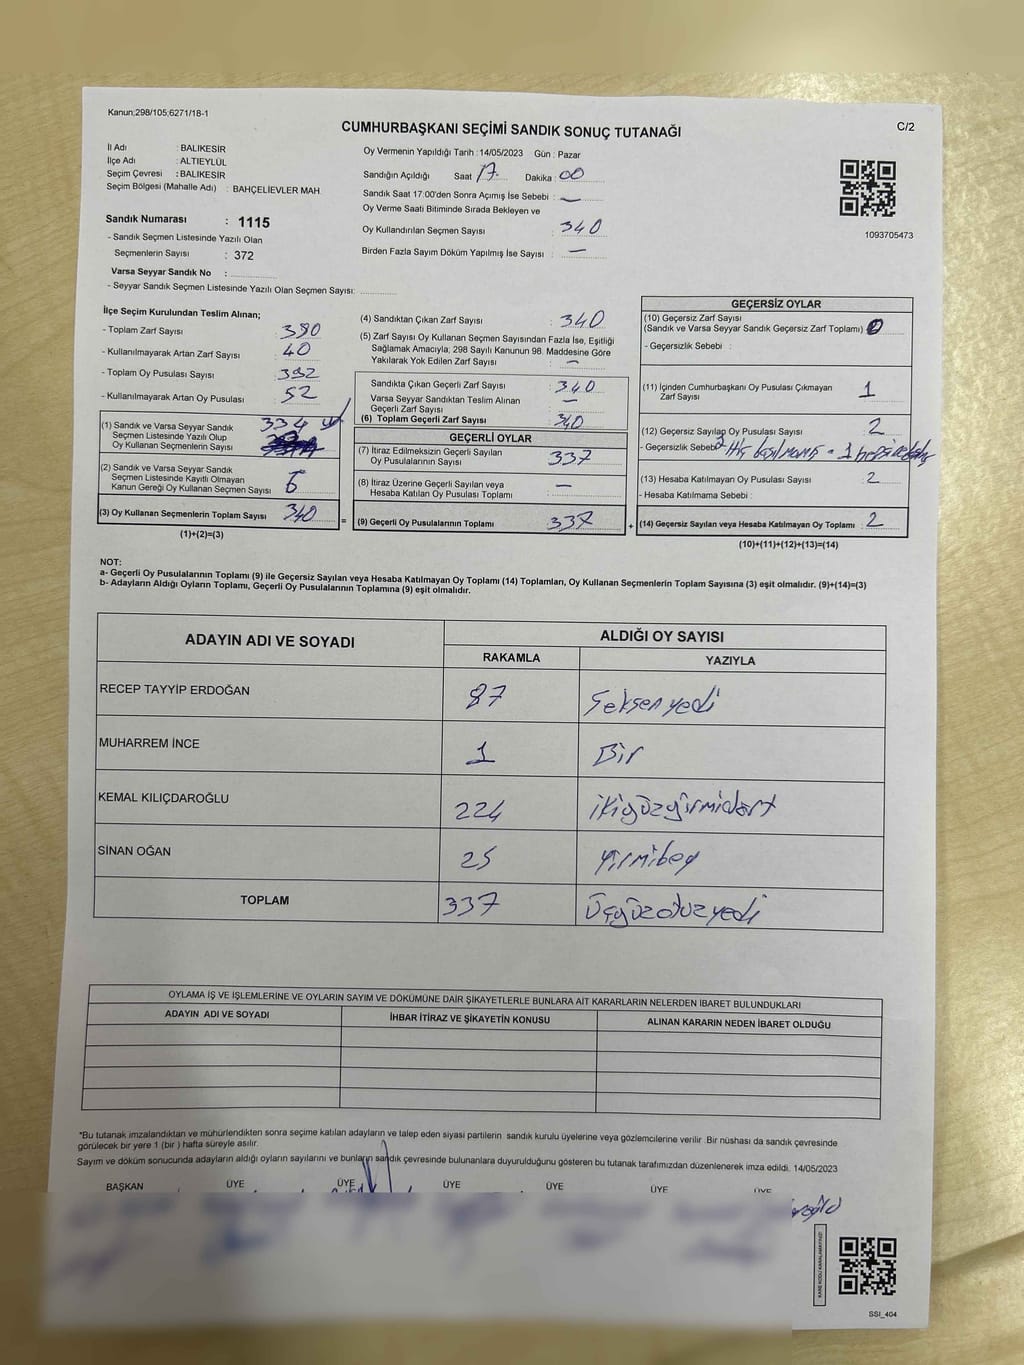 Kanun;298/105;6271/18-1
CUMHURBAŞKANI SEÇİMİ SANDIK SONUÇ TUTANAĞI
C/2
İl Adı : BALIKESİR
İlçe Adı : ALTIEYLÜL
Seçim Çevresi : BALIKESİR
Seçim Bölgesi (Mahalle Adı) : BAHÇELİEVLER MAH.
Sandık Numarası : 1115
- Sandık Seçmen Listesinde Yazılı Olan
Seçmenlerin Sayısı : 372
Varsa Seyyar Sandık No :
- Seyyar Sandık Seçmen Listesinde Yazılı Olan Seçmen Sayısı:
Oy Vermenin Yapıldığı Tarih : 14/05/2023 Gün : Pazar
Sandığın Açıldığı Saat 17 Dakika : 00
Sandık Saat 17:00'den Sonra Açımış İse Sebebi : —
Oy Verme Saati Bitiminde Sırada Bekleyen ve
Oy Kullandırılan Seçmen Sayısı : 340
Birden Fazla Sayım Döküm Yapılmış İse Sayısı : —
1093705473
İlçe Seçim Kurulundan Teslim Alınan;
- Toplam Zarf Sayısı : 380
- Kullanılmayarak Artan Zarf Sayısı : 40
- Toplam Oy Pusulası Sayısı : 392
- Kullanılmayarak Artan Oy Pusulası : 52
(1) Sandık ve Varsa Seyyar Sandık
Seçmen Listesinde Yazılı Olup
Oy Kullanan Seçmenlerin Sayısı : 334
(2) Sandık ve Varsa Seyyar Sandık
Seçmen Listesinde Kayıtlı Olmayan
Kanun Gereği Oy Kullanan Seçmen Sayısı : 6
(3) Oy Kullanan Seçmenlerin Toplam Sayısı : 340 =
(1)+(2)=(3)
(4) Sandıktan Çıkan Zarf Sayısı : 340
(5) Zarf Sayısı Oy Kullanan Seçmen Sayısından Fazla İse, Eşitliği
Sağlamak Amacıyla, 298 Sayılı Kanunun 98. Maddesine Göre
Yakılarak Yok Edilen Zarf Sayısı : —
Sandıkta Çıkan Geçerli Zarf Sayısı : 340
Varsa Seyyar Sandıktan Teslim Alınan
Geçerli Zarf Sayısı : —
(6) Toplam Geçerli Zarf Sayısı : 340
GEÇERLİ OYLAR
(7) İtiraz Edilmeksizin Geçerli Sayılan
Oy Pusulalarının Sayısı : 337
(8) İtiraz Üzerine Geçerli Sayılan veya
Hesaba Katılan Oy Pusulası Toplamı : —
(9) Geçerli Oy Pusulalarının Toplamı : 337 +
GEÇERSİZ OYLAR
(10) Geçersiz Zarf Sayısı
(Sandık ve Varsa Seyyar Sandık Geçersiz Zarf Toplamı) : 0
- Geçersizlik Sebebi :
(11) İçinden Cumhurbaşkanı Oy Pusulası Çıkmayan
Zarf Sayısı : 1
(12) Geçersiz Sayılan Oy Pusulası Sayısı : 2
- Geçersizlik Sebebi : Hiç basılmamış 1
(13) Hesaba Katılmayan Oy Pusulası Sayısı : 2
- Hesaba Katılmama Sebebi :
(14) Geçersiz Sayılan veya Hesaba Katılmayan Oy Toplamı : 2
(10)+(11)+(12)+(13)=(14)
NOT:
a- Geçerli Oy Pusulalarının Toplamı (9) ile Geçersiz Sayılan veya Hesaba Katılmayan Oy Toplamı (14) Toplamları, Oy Kullanan Seçmenlerin Toplam Sayısına (3) eşit olmalıdır. (9)+(14)=(3)
b- Adayların Aldığı Oyların Toplamı, Geçerli Oy Pusulalarının Toplamına (9) eşit olmalıdır.
ADAYIN ADI VE SOYADI ALDIĞI OY SAYISI
RAKAMLA YAZIYLA
RECEP TAYYİP ERDOĞAN 87 Seksenyedi
MUHARREM İNCE 1 Bir
KEMAL KILIÇDAROĞLU 224 ikiyüzyirmidört
SİNAN OĞAN 25 Yirmibeş
TOPLAM 337 Üçyüzotuzyedi
OYLAMA İŞ VE İŞLEMLERİNE VE OYLARIN SAYIM VE DÖKÜMÜNE DAİR ŞİKAYETLERLE BUNLARA AİT KARARLARIN NELERDEN İBARET BULUNDUKLARI
ADAYIN ADI VE SOYADI İHBAR İTİRAZ VE ŞİKAYETİN KONUSU ALINAN KARARIN NEDEN İBARET OLDUĞU
*Bu tutanak imzalandıktan ve mühürlendikten sonra seçime katılan adayların ve talep eden siyasi partilerin sandık kurulu üyelerine veya gözlemcilerine verilir .Bir nüshası da sandık çevresinde
görülecek bir yere 1 (bir ) hafta süreyle asılır.
Sayım ve döküm sonucunda adayların aldığı oyların sayılarını ve bunların sandık çevresinde bulunanlara duyurulduğunu gösteren bu tutanak tarafımızdan düzenlenerek imza edildi. 14/05/2023
BAŞKAN ÜYE ÜYE ÜYE ÜYE ÜYE ÜYE
KARE KODU KARALAMAYINIZ!
SSI_404